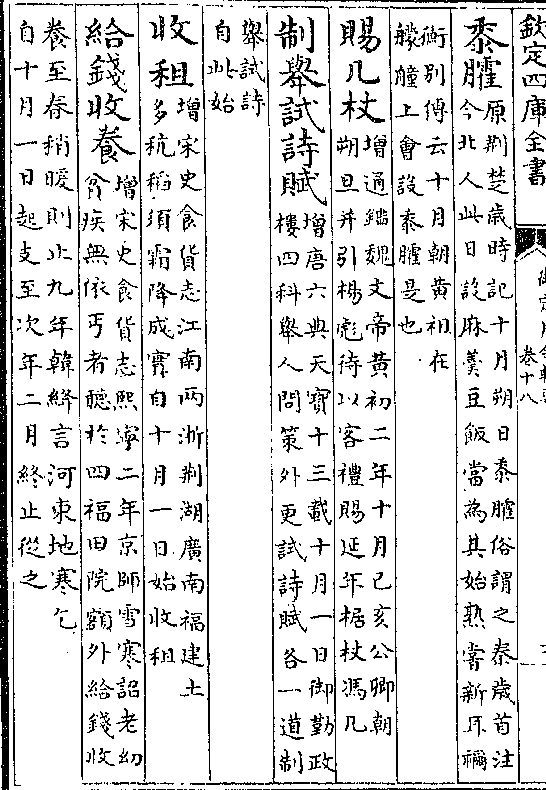 欽定四庫全書
卷十八
黍臛原荆楚歲時記十月朔日黍臛俗謂之秦歲首注
今北人此日設麻羹豆飯當為其始熟嘗新耳禰
衡别傳云十月朝黄祖在
艨艟上會設黍臛是也
賜几杖增通鑑魏文帝黄初二年十月己亥公卿朝
朔旦并引楊彪待以客禮賜延年椐杖馮几
制舉試詩賦增唐六典天寶十三載十月一日御勤政
樓四科舉人問策外更試詩賦各一道制
舉試詩
自此始
收租增宋史食貨志江南兩浙荆湖廣南福建土
多秔稻須霜降成實自十月一日始收租
給錢收養增宋史食貨志熙寧二年京師雪寒詔老幼
貧疾無依丐者聽於四福田院額外給錢收
養至春稍暖則止九年韓絳言河東地寒乞
自十月一日起支至次年二月終止從之